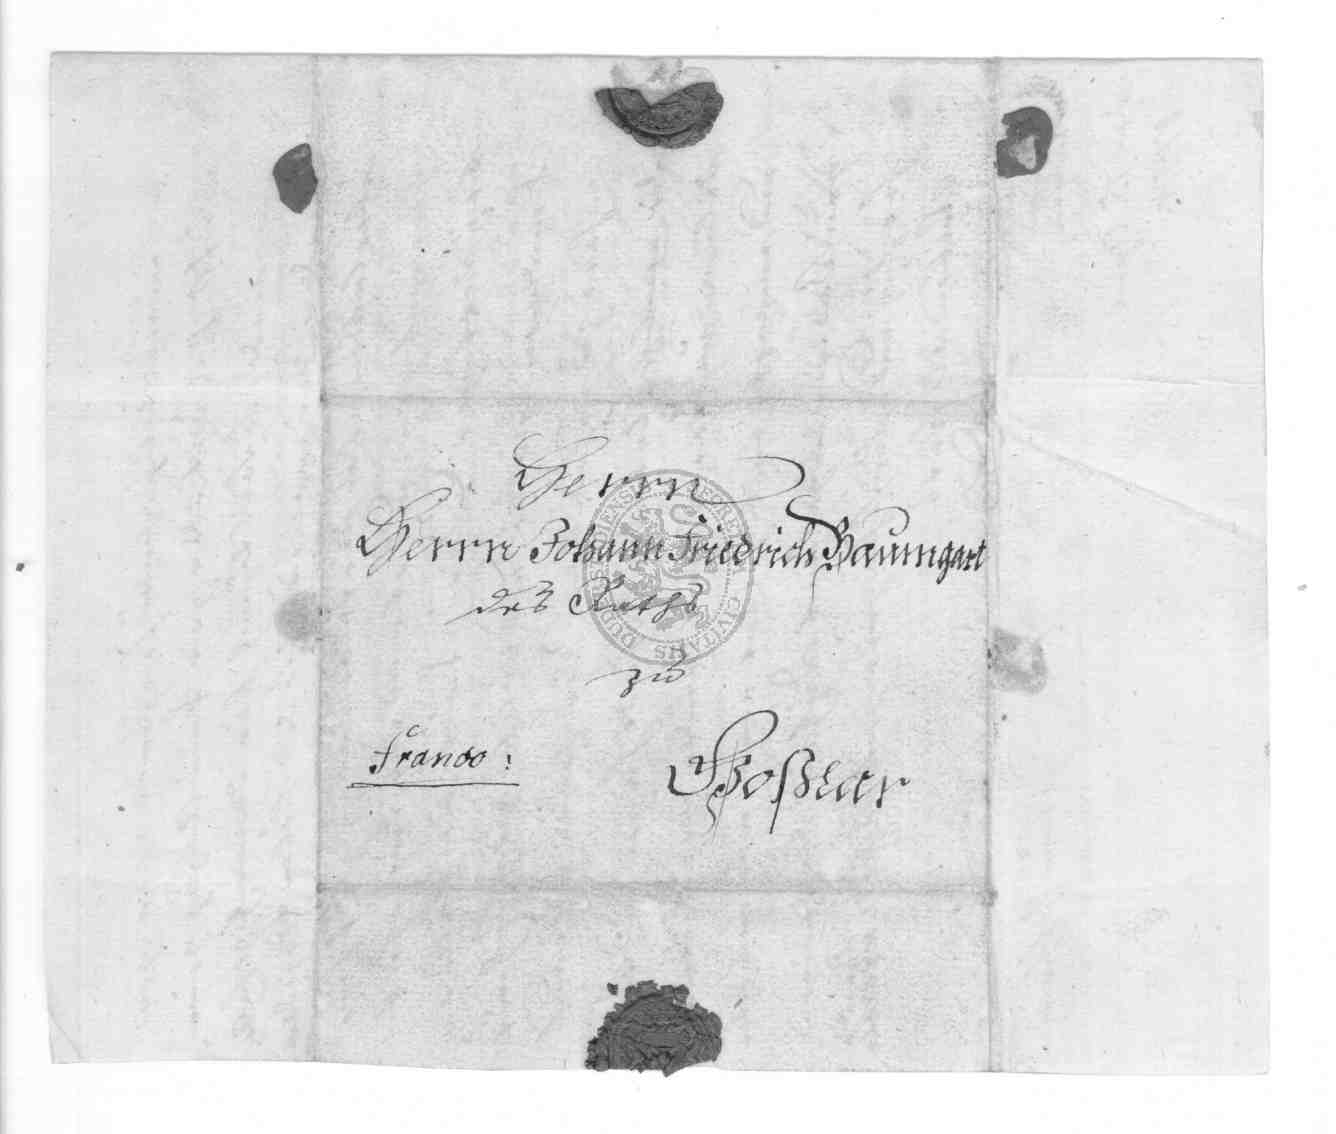 Herrn
Herrn Johann Friedrich Baumgart
des Raths
zu
Franco:
Goßlar